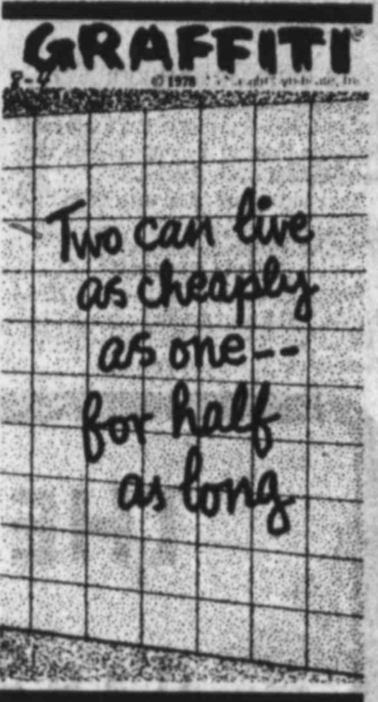 GRAFFITI
8-4
© 1978
Two can live
as cheaply
as one--
for half
as long